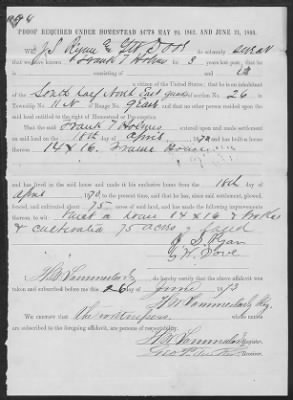 PROOF REQUIRED UNDER HOMESTEAD ACTS MAY 20, 1862, AND JUNE 21, 1866.
We, J S Ryan & G H Dove do solemnly swear
that we have known Frank T Holmes for 3 years last past; that he
is consisting of and
a citizen of the United States; that he is an inhabitant
of the South half North East quar of section No. 26 in
Township No. 11 N of Range No. 9 East and that no other person resided upon the said
land entitled to the right of Homestead or Pre-emption.
That the said Frank T Holmes entered upon and made settlement
on said land on the 18th day of April, 1870 and has built a house
thereon 14 x 16 Frame House
and has lived in the said house and made it his exclusive home from the 18th day of
April, 1870, to the present time, and that he has, since said settlement, plowed,
fenced, and cultivated about 75 acres of said land, and has made the following improvements
thereon, to wit: Built a house 14 x 16 & broke
& cultivated 75 acres
J. S. Ryan
G. H. Dove
I, do hereby certify that the above affidavit was
taken and subscribed before me this 26 day of June 1873
We certify that the witnesses whose names
are subscribed to the foregoing affidavit, are persons of respectability.
Register.
Receiver.